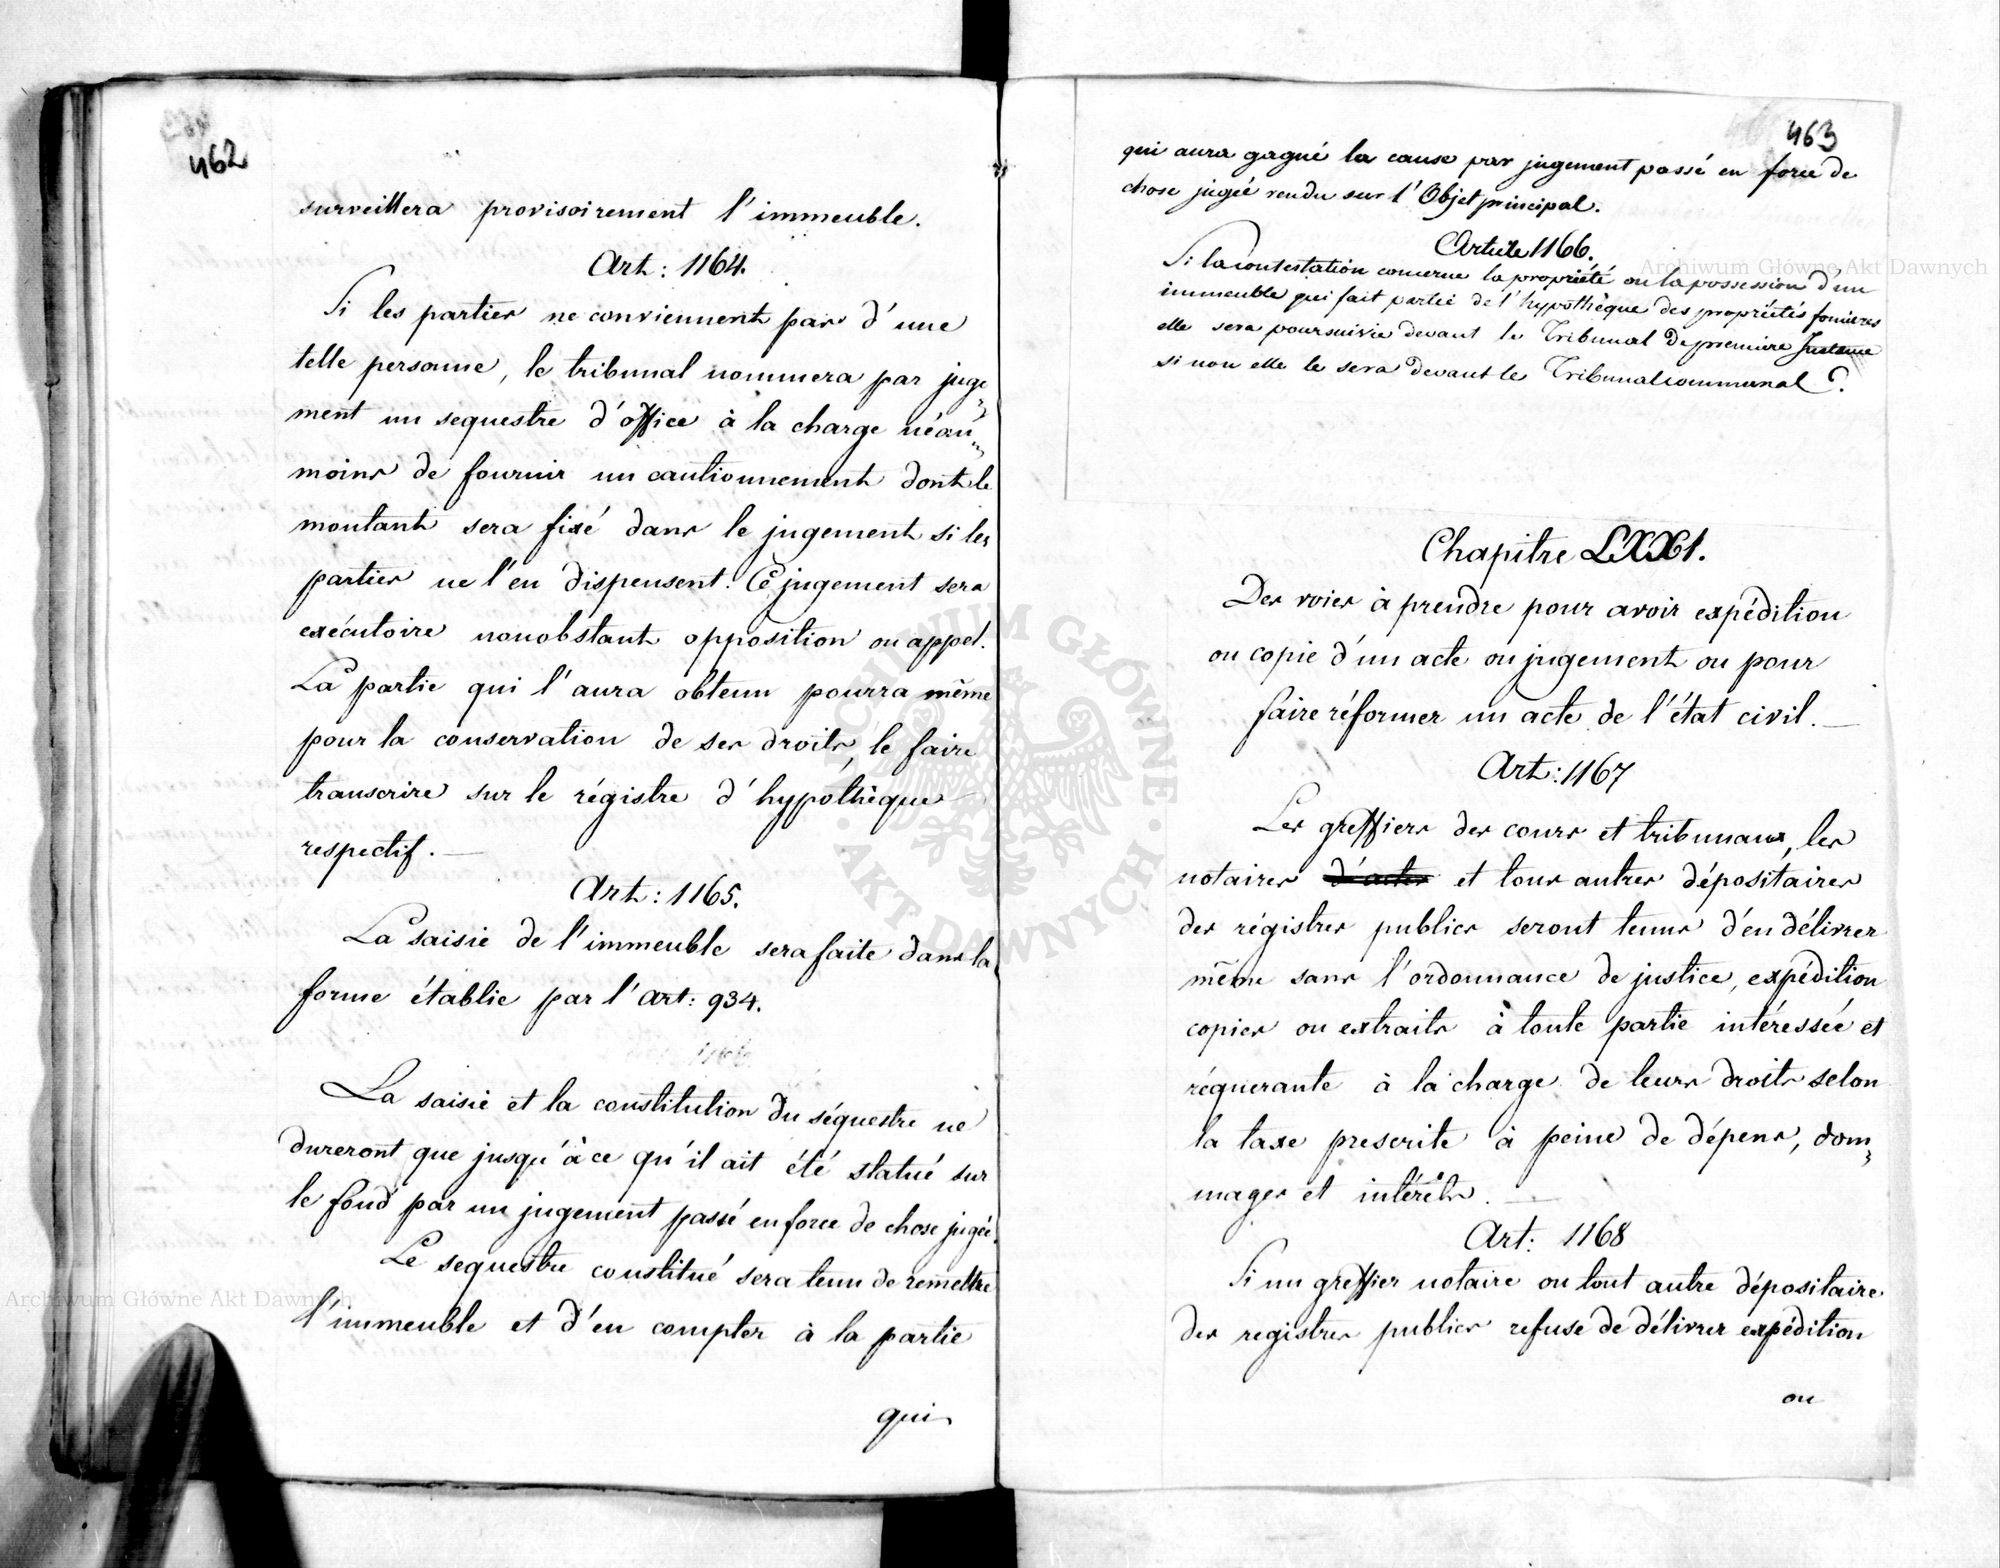 462
surveillera provisoirement l'immeuble.
Art: 1164.
Si les parties ne conviennent pas d'une
telle personne, le tribunal nommera par juge
ment un sequestre d'office à la charge néan
moins de fournir un cautionnement dont le
montant sera fixé dans le jugement si les
parties ne l'en dispensent. Ce jugement sera
exécutoire nonobstant opposition ou appel.
La partie qui l'aura obtenu pourra même
pour la conservation de ses droits, le faire
transcrire sur le régistre d'hypothèque
respectif. —
Art: 1165.
La saisie de l'immeuble sera faite dans la
forme établie par l'art: 934.
La saisie et la constitution du séquestre ne
dureront que jusqu'à ce qu'il ait été statué sur
le fond par un jugement passé en force de chose jugée.
Le sequestre constitué sera tenu de remettre
l'immeuble et d'en compter à la partie
qui
463
qui aura gagné la cause par jugement passé en force de
chose jugée rendu sur l'Objet principal.
Article 1166.
Si la contestation concerne la propriété ou la possession d'un
immeuble qui fait partie de l'hypothèque des propriétés foncières
elle sera poursuivie devant le Tribunal de premiere Instance
si non elle le sera devant le Tribunal communal.
Chapitre LXXI.
Des voies à prendre pour avoir expédition
ou copie d'un acte ou jugement ou pour
faire réformer un acte de l'état civil. —
Art: 1167
Les greffiers des cours et tribunaux, les
notaires d'actes et tous autres dépositaires
des régistres publics seront tenus d'en délivrer
même sans l'ordonnance de justice, expédition
copies ou extraits à toute partie intéressée et
réquerante à la charge de leurs droits selon
la taxe prescrite à peine de dépens, dom
mages et intérêts. —
Art: 1168
Si un greffier notaire ou tout autre dépositaire
des registres publics refuse de délivrer expédition
ou
ARCHIWUM GŁÓWNE AKT DAWNYCH
Archiwum Główne Akt Dawnych
Archiwum Główne Akt Dawnych